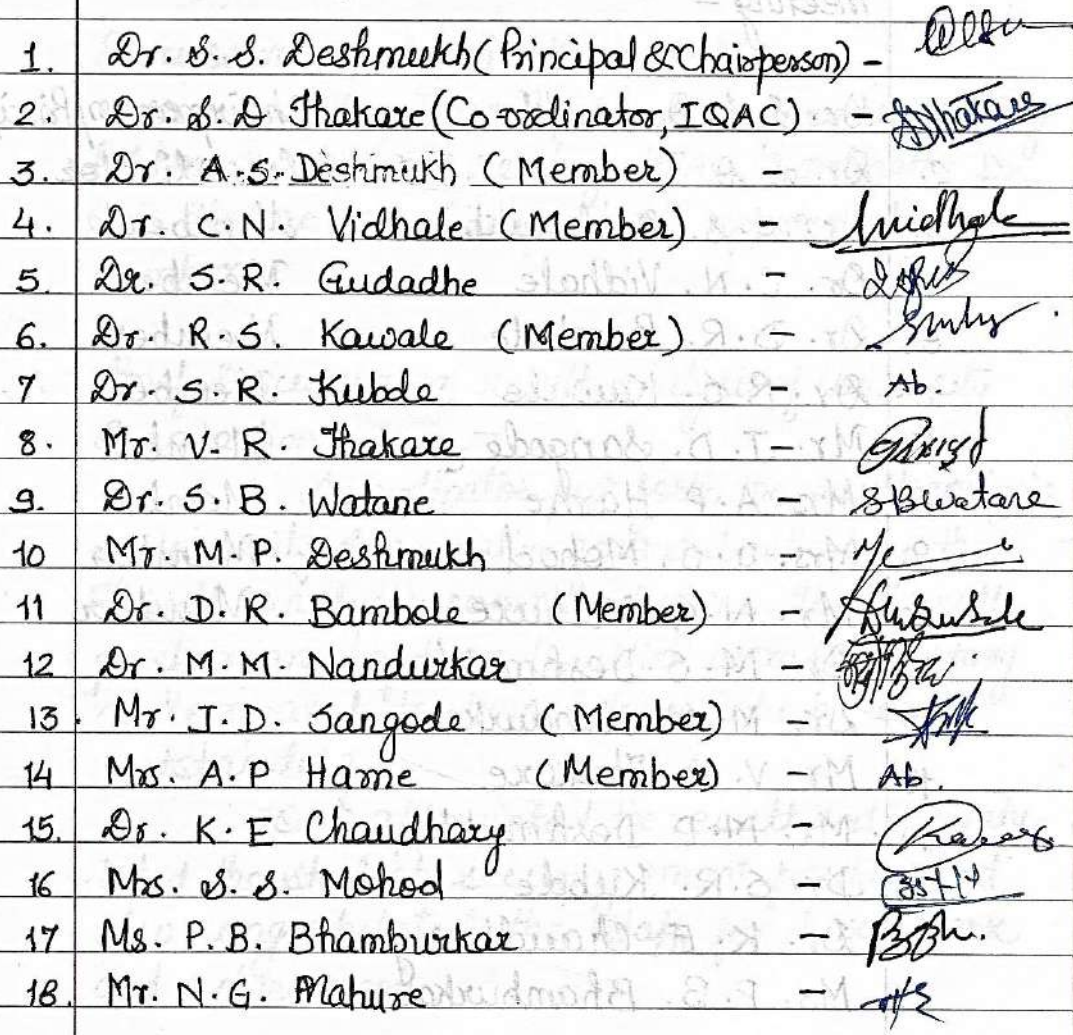 1. Dr. S. S. Deshmukh (Principal & Chairperson) -
2. Dr. S. D Thakare (Co-ordinator, IQAC) - SDThakare
3. Dr. A.S. Deshmukh (Member) -
4. Dr. C.N. Vidhale (Member) -
5. Dr. S.R. Gudadhe -
6. Dr. R.S. Kawale (Member) -
7 Dr. S. R. Kubde - Ab.
8. Mr. V. R. Thakare -
9. Dr. S. B. Watane - SBWatane
10 Mr. M.P. Deshmukh -
11 Dr. D. R. Bambole (Member) -
12 Dr. M. M. Nandurkar -
13. Mr. J. D. Sangode (Member) -
14 Mrs. A.P Harne (Member) - Ab.
15. Dr. K. E Chaudhary -
16 Mrs. S. S. Mohod -
17 Ms. P. B. Bhamburkar -
18. Mr. N. G. Mahure -